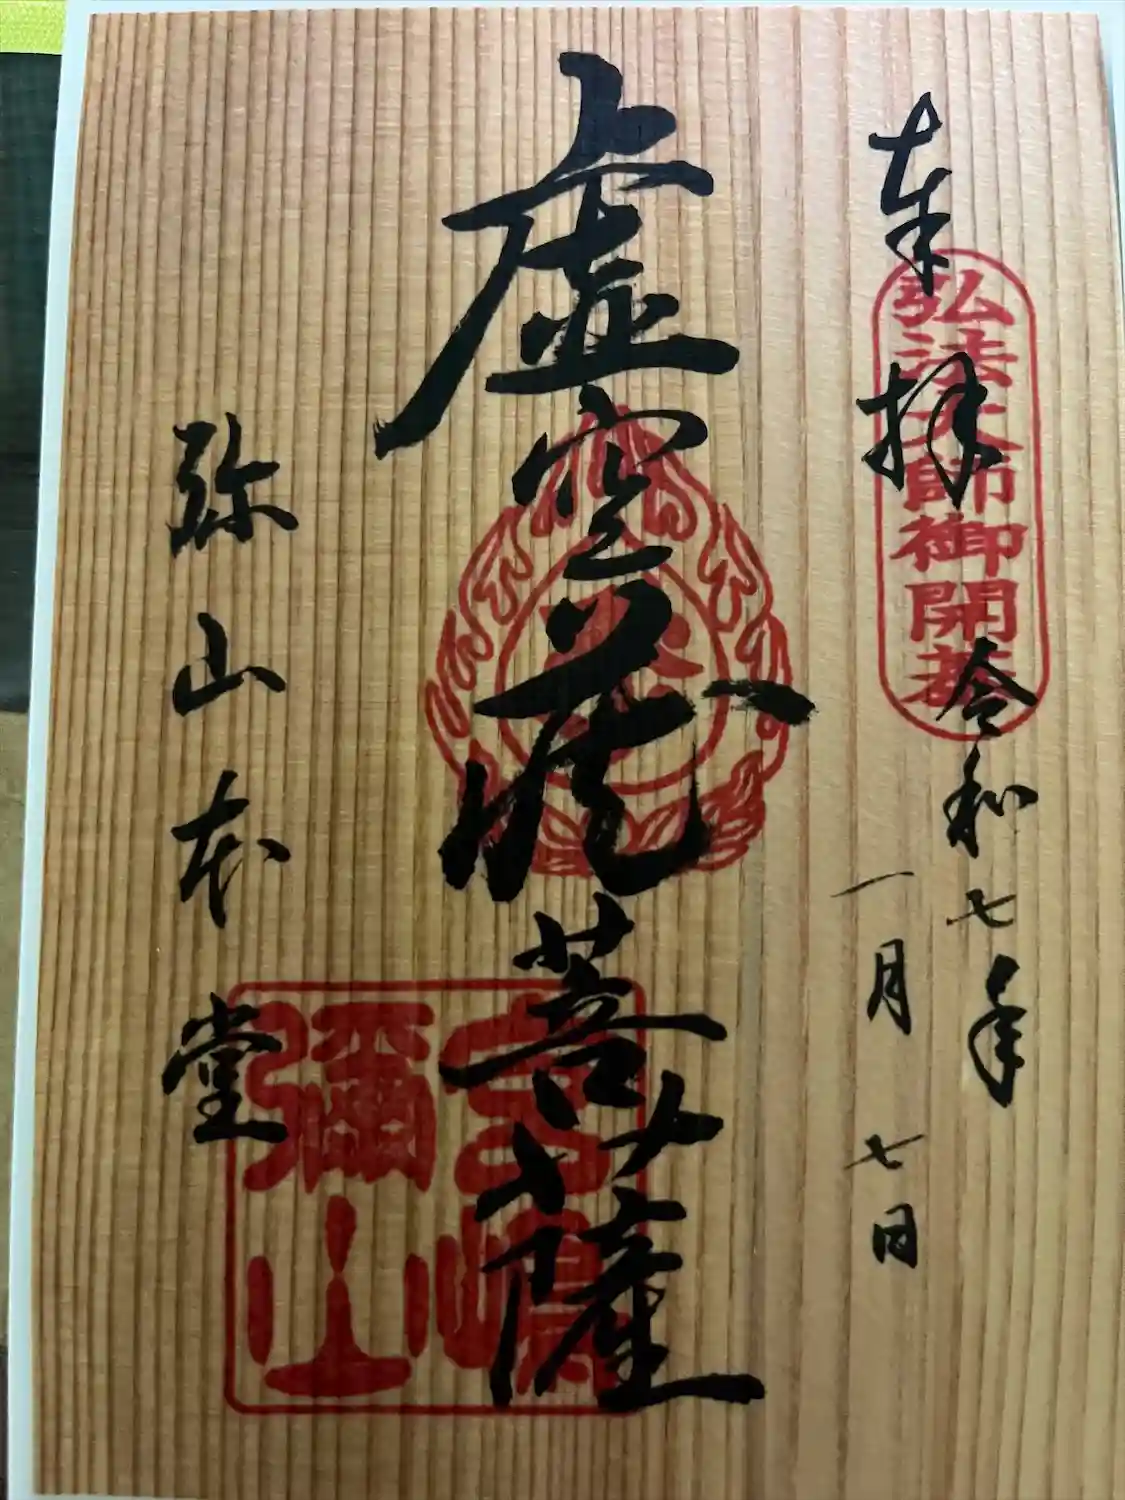 奉拝
弘法大師御開基
令和七年
一月七日
虚空蔵菩薩
宮嶋
彌山
弥山本堂